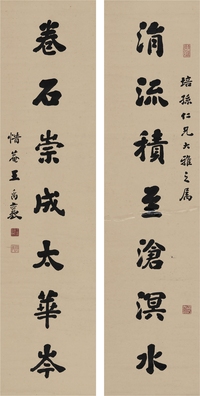 培孫仁兄大雅之属
涓流積至滄溟水
卷石崇成太華岑
惜菴王